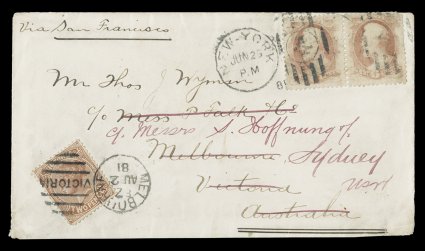 Via San Francisco
NEW-YORK
JUN 25
P.M
Mr Thos J Wyman
c/o Miss P Falk & Co
c/o Messrs S. Hoffnung &
Melbourne Sydney
Victoria NSW
Australia
VICTORIA
MELBOURNE
AU 2
81